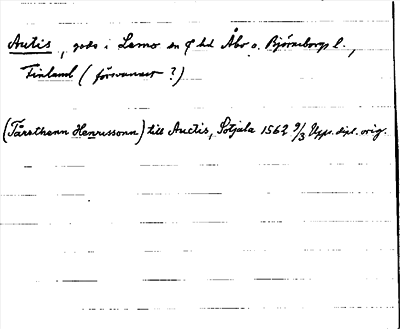 Auctis, gods i Lemo sn Åbo o. Björneborgs l.,
Finland (försvunnet ?)
(Tårsthenn Henrussonn) till Auctis, Sotjala 1562 9/3 Upps. dipl. orig.